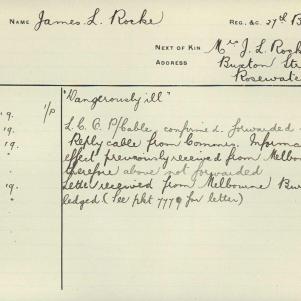 NAME James L. Rocke REG. &C. 27th B
NEXT OF KIN Mrs J. L. Rock
ADDRESS Buxton Str
Rosewate
"Dangerously ill"
19. L.C.C. P/Cable, confirmed. forwarded
19. Reply cable from Commrs. Informa
" effect previously received from Melbou
" therefore above not forwarded
19. Letter received from Melbourne Bur
" ledged (See pkt 7779 for letter)